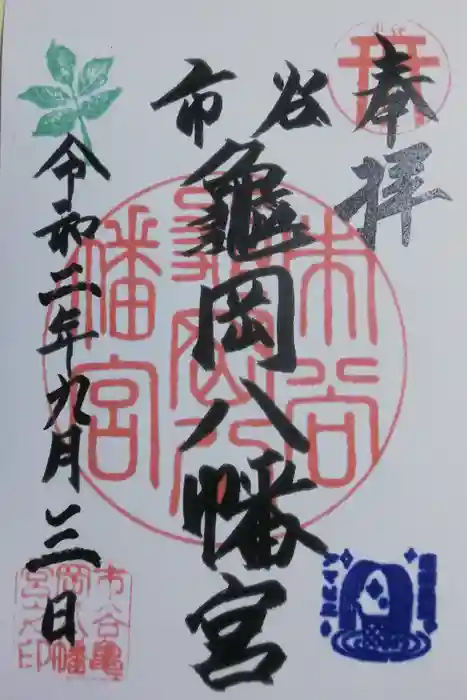 奉拝
市谷
龜岡八幡宮
令和二年九月三日
市谷
龜岡八
幡宮
市谷亀
岡八幡
宮之印